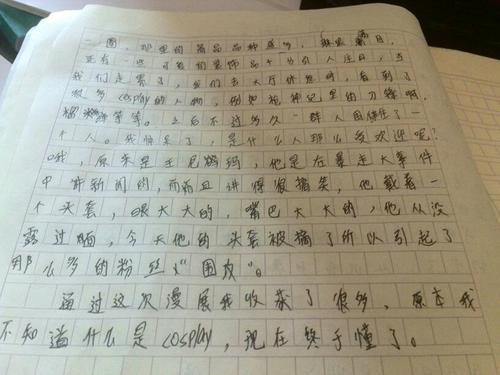 一圈，那里的商品品种盛多，琳琅满目，
还有一些可爱的装饰品十分引人注目，当
我们走累了，我们去大厅休息时，看到了
很多cosplay的人物，例如 神记里的刀锋啊，
等等。之后不过多久一群人围住了一
个人。我惊呆了，是什么人那么受欢迎呢？
哦，原来是王尼玛，他是在暴走大事件
中讲新闻的，而且讲得很搞笑，他戴着一
个头套，眼大大的，嘴巴大大的，他从没
露过面，今天他的头套被摘了所以引起了
那么多的粉丝“围攻”。
通过这次漫展我收获了很多，原本我
不知道什么是cosplay，现在终于懂了。